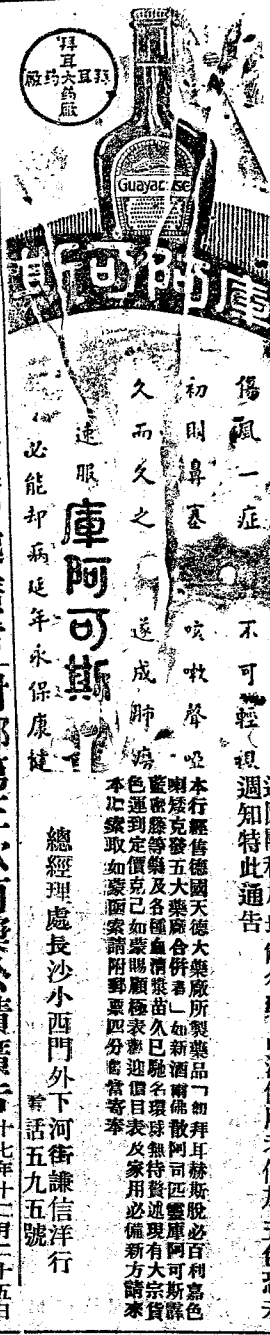 拜耳大药廠
拜耳药廠
Guayacose
庫阿可斯
傷風一症　不可輕視
初則鼻塞　咳嗽聲啞
久而久之　遂成肺癆
速服　庫阿可斯
必能却病延年永保康健
本行經售德國天德大藥廠所製藥品「如拜耳赫斯脫必百利嘉色
喇矮克發五大藥廠合併者」如新酒爾佛散阿司匹靈庫阿可斯
藍密滕等藥及各種血清漿苗久已馳名環球無待贅述現有大宗貨
色運到定價克己如蒙賜顧極表歡迎價目表及家用必備新方請來
本　索取如蒙函索請附郵票四分當寄奉
總經理處長沙小西門外下河街謙信洋行
電話五九五號
週知特此通告
十七年十二月二十五日